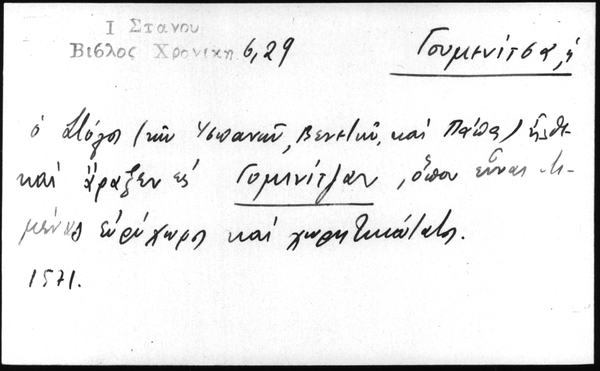 Ι Στανου
Βιβλος Χρονικη 6,29
Γουμενίτσα, ἡ
ὁ στόλος (τῶν Ἱσπανῶν, Βενετῶν, καὶ Πάπα) ἦλθε
καὶ ἄραξεν εἰς Γομενίτζαν, ὅπου εἶναι λι-
μένας εὐρύχωρος καὶ χωρητικώτατος.
1571.